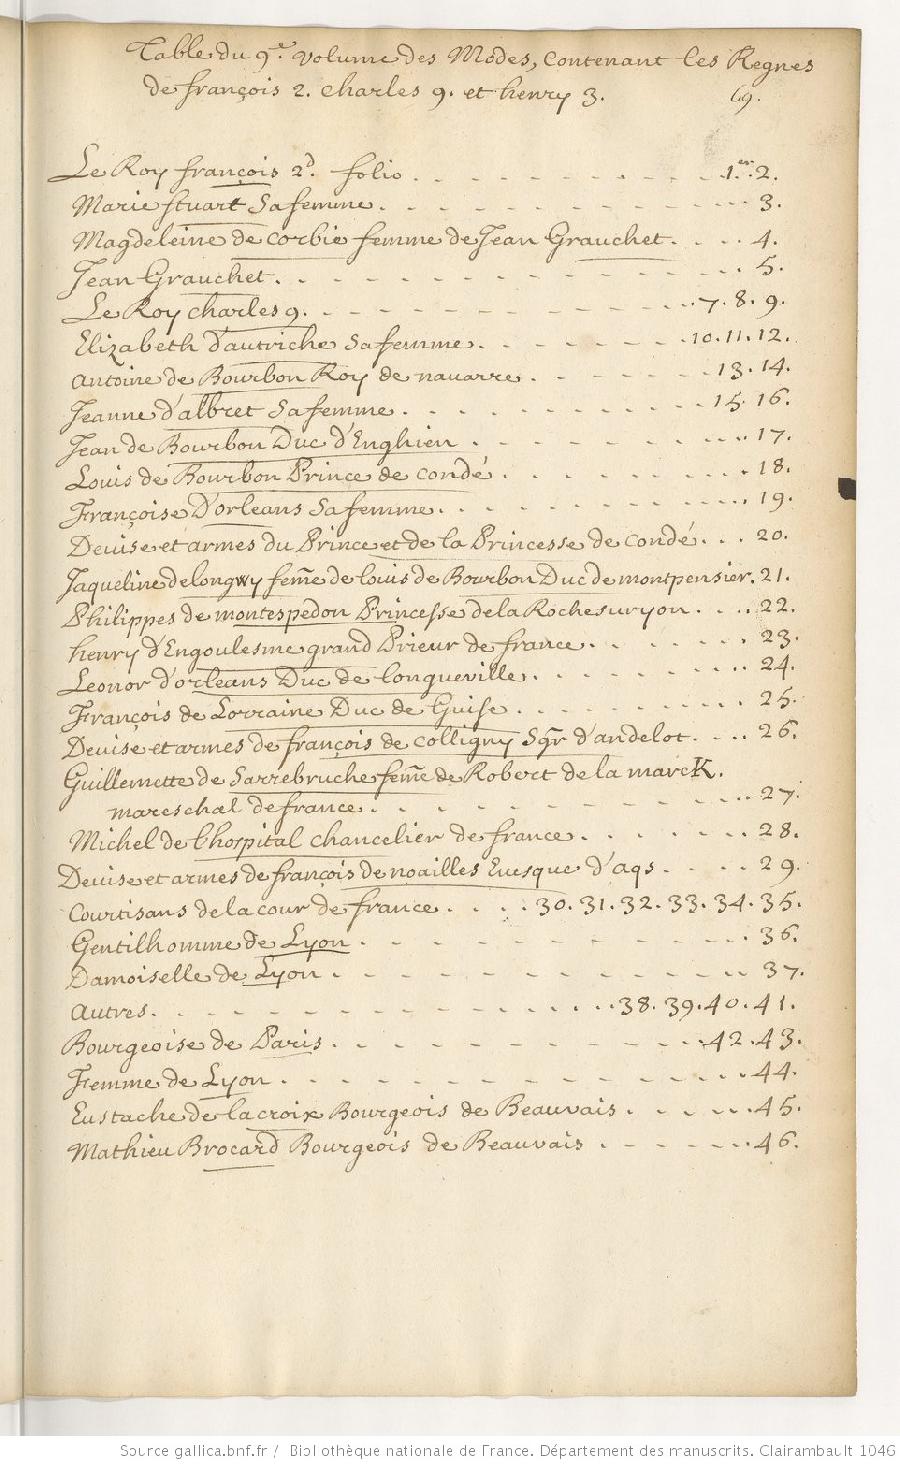 Table du 9.e volume des Modes, contenant les Regnes
de françois 2. charles 9. et henry 3. 69.
Le Roy françois 2.d folio . . . . . . . . . . 1.er 2.
Marie stuart sa femme . . . . . . . . . . . 3.
Magdeleine de corbie femme de Jean Grauchet . . . . 4.
Jean Grauchet . . . . . . . . . . . . . . 5.
Le Roy charles 9. . . . . . . . . . . . . 7. 8. 9.
Elizabeth d'autriche sa femme . . . . . . . . 10. 11. 12.
antoine de Bourbon Roy de navarre . . . . . . 13. 14.
Jeanne d'albret sa femme . . . . . . . . . . 15. 16.
Jean de Bourbon Duc d'Enghien . . . . . . . . . 17.
Louis de Bourbon Prince de condé . . . . . . . . 18.
Françoise D'orleans sa femme . . . . . . . . . . 19.
Deuise et armes du Prince et de la Princesse de condé . . . 20.
Jaqueline de longwy fem̃e de louis de Bourbon Duc de montpensier. 21.
Philippes de montespedon Princesse de la Roche suryon . . . . 22.
henry d'Engoulesme grand Prieur de france . . . . . . 23.
Leonor d'orleans Duc de longueville . . . . . . . . 24.
François de Lorraine Duc de Guise . . . . . . . . 25.
Deuise et armes de françois de colligny Sgr d'andelot . . . . 26.
Guillemette de Sarrebruche fem̃e de Robert de la marcK.
mareschal de france . . . . . . . . . . . . 27.
Michel de l'hospital chancelier de france . . . . . . 28.
Deuise et armes de françois de noailles Euesque d'aqs . . . . 29.
Courtisans de la cour de france . . . . 30. 31. 32. 33. 34. 35.
Gentilhomme de Lyon . . . . . . . . . . . . 36.
Damoiselle de Lyon . . . . . . . . . . . . . 37.
autres . . . . . . . . . . . . . . 38. 39. 40. 41.
Bourgeoise de Paris . . . . . . . . . . . 42. 43.
Femme de Lyon . . . . . . . . . . . . . . 44.
Eustache de la croix Bourgeois de Beauvais . . . . . 45.
Mathieu Brocard Bourgeois de Beauvais . . . . . . 46.
Source gallica.bnf.fr / Bibliothèque nationale de France. Département des manuscrits. Clairambault 1046